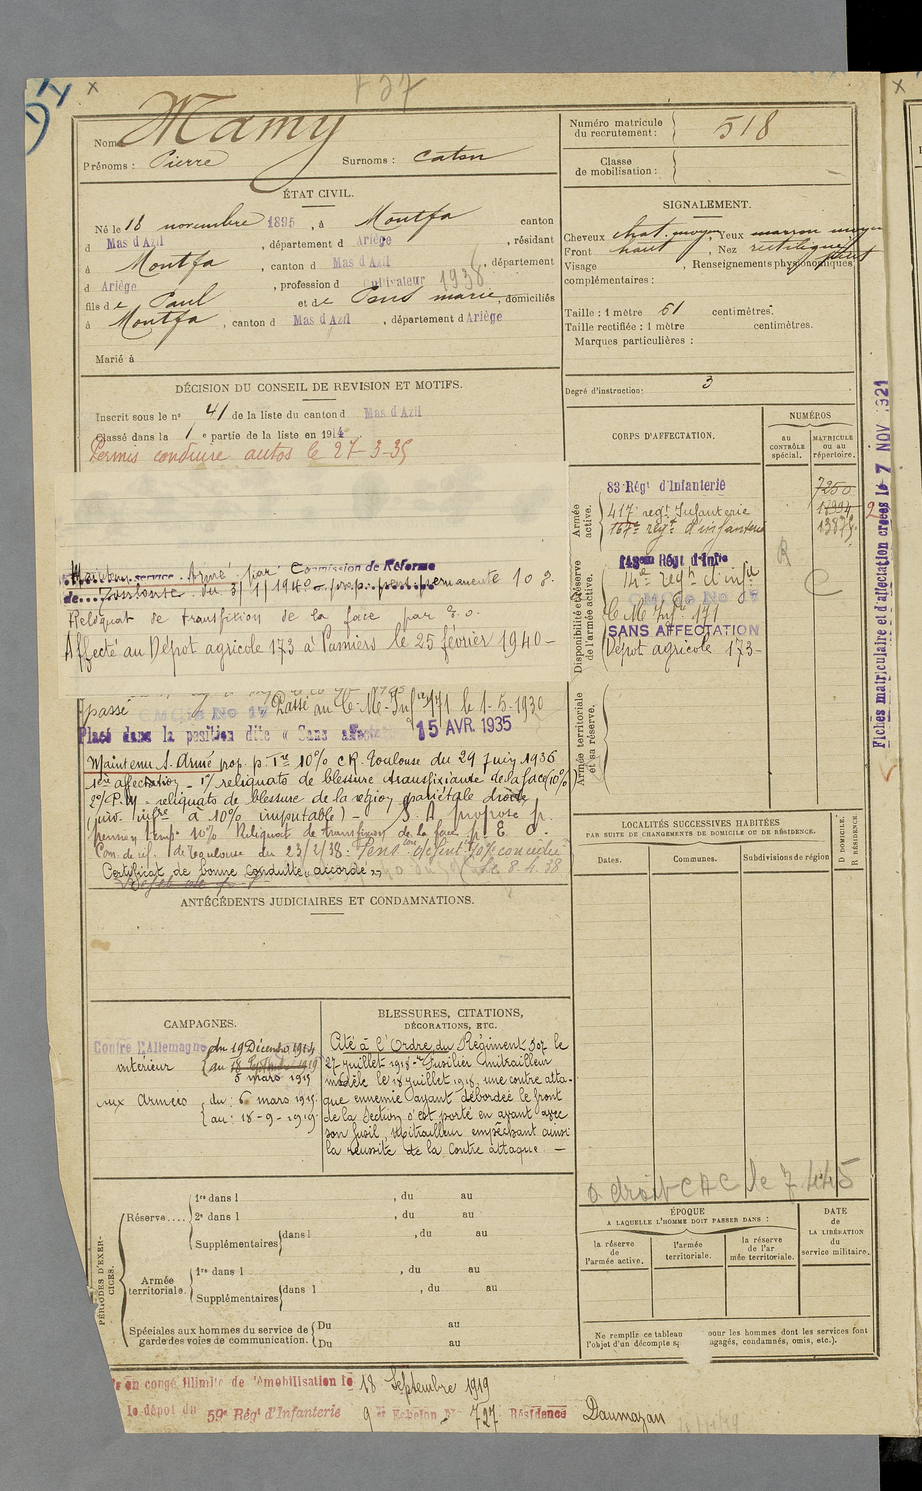 Nom Mamy
Prénoms : Pierre Surnoms : Caton
Numéro matricule du recrutement : 518
Classe de mobilisation :
ÉTAT CIVIL.
Né le 18 novembre 1895, à Montfa canton
d Mas d'Azil, département d Ariège, résidant
à Montfa, canton d Mas d'Azil, département
d Ariège, profession d Cultivateur 1938
fils de Paul et de Pons marie, domiciliés
à Montfa, canton d Mas d'Azil, département d Ariège
Marié à
SIGNALEMENT.
Cheveux chat. moyen Yeux marron moyen
Front haut, Nez rectiligne
Visage , Renseignements physionomiques
complémentaires :
Taille : 1 mètre 61 centimètres.
Taille rectifiée : 1 mètre centimètres.
Marques particulières :
Degré d'instruction : 3
DÉCISION DU CONSEIL DE REVISION ET MOTIFS.
Inscrit sous le n° 41 de la liste du canton d Mas d'Azil
Classé dans la 1e partie de la liste en 1914
Permis conduire autos le 27-3-35
Maintenu service Armé par Commission de Réforme
de Toulouse du 3/1/1940 prop. pens. permanente 10 %
Reliquat de transfixion de la face par E.O.
Affecté au Dépot agricole 173 à Pamiers le 25 février 1940-
passé CMOIe No 17 Passé au C. M. Infie 171 le 1-5-1930
Placé dans la position dite « Sans affectation 15 AVR. 1935
Maintenu S. Armé prop. p. Tre 10% CR. Toulouse du 29 Juin 1936
1ère affectation - 1°/ reliquats de blessure transfixiante de la face (10%)
2°/ P.M - reliquats de blessure de la région pariétale droite
(inv. infre à 10% imputable) - S. A propose p.
pension temp. 10% Reliquat de transfixion de la face p. E. O.
Com. de réf. de Toulouse du 23/2/38. Pens. défint 10% concédée
Certificat de bonne conduite « accordé » le 8.4.38
ANTÉCÉDENTS JUDICIAIRES ET CONDAMNATIONS.
CORPS D'AFFECTATION.
NUMÉROS
au CONTRÔLE spécial.
MATRICULE ou au répertoire.
Armée active.
83 Régt d'Infanterie 7250
417e regt Infanterie 17994
167e regt d'infanterie 13875
Disponibilité et Réserve de l'armée active.
14e regt d'infie
CMOIe No 17
C. M. Infie 171
SANS AFFECTATION
Dépot agricole 173-
R
C
Armée territoriale et sa réserve.
Fiches matriculaire et d'affectation créées le 7 NOV 1921
LOCALITÉS SUCCESSIVES HABITÉES
PAR SUITE DE CHANGEMENTS DE DOMICILE OU DE RÉSIDENCE.
Dates.
Communes.
Subdivisions de région
D DOMICILE.
R RÉSIDENCE.
CAMPAGNES.
Contre l'Allemagne du 19 Décembre 1914
intérieur au
5 mars 1915
aux Armées du : 6 mars 1915.
au : 18-9-1919.
BLESSURES, CITATIONS,
DÉCORATIONS, ETC.
Cité à l'Ordre du Régiment 307 le
27 juillet 1918 - Fusilier mitrailleur
modèle le 18 juillet 1918, une contre atta-
que ennemie ayant débordée le front
de la Section s'est porté en avant avec
son fusil Mitrailleur empêchant ainsi
la réussite de la contre attaque. -
a droit CAC le 7.4.45
PÉRIODES D'EXERCICES.
Réserve....
1re dans l , du au
2e dans l , du au
Supplémentaires dans l , du au
Armée territoriale.
1re dans l , du au
Supplémentaires dans l , du au
Spéciales aux hommes du service de garde des voies de communication.
Du au
Du au
ÉPOQUE
A LAQUELLE L'HOMME DOIT PASSER DANS :
la réserve de l'armée active.
l'armée territoriale.
la réserve de l'armée territoriale.
DATE de LA LIBÉRATION du service militaire.
Ne remplir ce tableau pour les hommes dont les services font
l'objet d'un décompte agagés, condamnés, omis, etc.).
en congé illimité de démobilisation le 18 Septembre 1919
le dépot du 59e Régt d'Infanterie 9e Echelon No 727 Résidence Daumazan